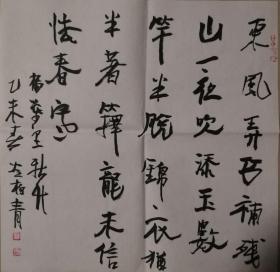 東風弄巧補残
山一夜吹添玉數
竿半脱錦衣猶
半著籜龍未信
怯春寒
萬里
乙未春 青